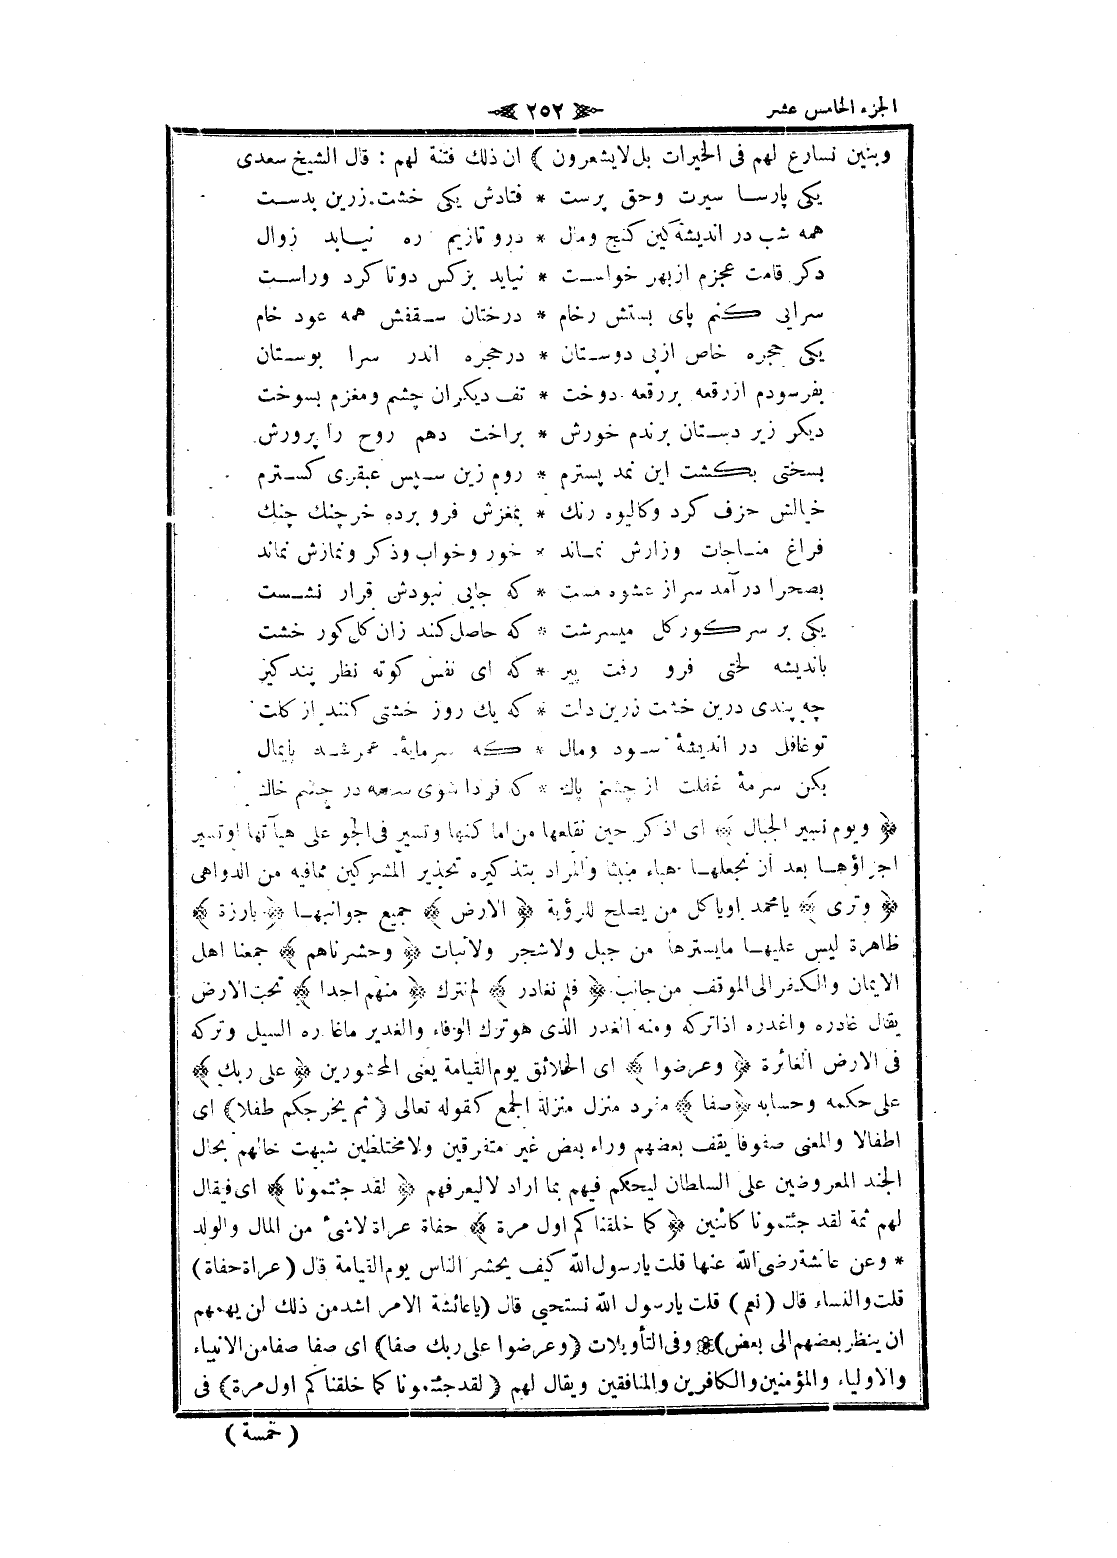 الجزء الخامس عشر
٢٥٢
وبنين نسارع لهم فى الخيرات بل لايشعرون ) ان ذلك فتنة لهم : قال الشيخ سعدى
يكى پارسا سيرت وحق پرست * فتادش يكى خشت زرين بدست
همه شب در انديشه كين كنج ومال * درو تازيم ره نيابد زوال
دكر قامت عجزم ازبهر خواست * نبايد بركس دوتا كرد وراست
سرايى كنم پاى بستش رخام * درختان سقفش همه عود خام
يكى حجره خاص ازپى دوستان * درحجره اندر سرا بوستان
بفرسودم ازرقعه بررقعه دوخت * تف ديكران چشم ومغزم بسوخت
ديكر زير دستان برندم خورش * براحت دهم روح را پرورش
بسختى بكشت اين نمد بسترم * روم زين سپس عبقرى كسترم
خيالش حزف كرد وكاليوه رنك * بمغزش فرو برده خرچنك چنك
فراغ مناجات ورازش نماند * خور وخواب وذكر ونمازش نماند
بصحرا درآمد سراز عشوه مست * كه جايى نبودش قرار نشست
يكى بر سر كور كل ميسرشت * كه حاصل كند زان كل كور خشت
بانديشه لختى فرو رفت پير * كه اى نفس كوته نظر پندكير
چه پندى درين خشت زرين دلت * كه يك روز خشتى كنند از كلت
توغافل در انديشۀ سود ومال * كه سرمايۀ عمر شد پايمال
بكن سرمۀ غفلت از چشم پاك * كه فردا شوى سرمه در چشم خاك
﴿ ويوم نسير الجبال ﴾ اى اذكر حين نقلعها من اماكنها وتسير فى الجو على هيآتها اوتسير
اجزاؤها بعد أن نجعلها هباء منبثا والمراد بتذكيره تحذير المشركين ممافيه من الدواهى
﴿ وترى ﴾ يامحمد اوياكل من يصلح للرؤية ﴿ الارض ﴾ جميع جوانبها ﴿ بارزة ﴾
ظاهرة ليس عليها مايسترها من جبل ولاشجر ولانبات ﴿ وحشرناهم ﴾ جمعنا اهل
الايمان والكفر الى الموقف من جانب ﴿ فلم نغادر ﴾ لم نترك ﴿ منهم احدا ﴾ تحت الارض
يقال غادره واغدره اذاتركه ومنه الغدر الذى هوترك الوفاء والغدير ماغادره السيل وتركه
فى الارض الغائرة ﴿ وعرضوا ﴾ اى الخلائق يوم القيامة يعنى المحشورين ﴿ على ربك ﴾
على حكمه وحسابه ﴿ صفا ﴾ مفرد منزل منزلة الجمع كقوله تعالى ( ثم يخرجكم طفلا ) اى
اطفالا والمعنى صفوفا يقف بعضهم وراء بعض غير متفرقين ولامختلطين شبهت حالهم بحال
الجند المعروضين على السلطان ليحكم فيهم بما اراد لاليعرفهم ﴿ لقد جئتمونا ﴾ اى فيقال
لهم ثمة لقد جئتمونا كائنين ﴿ كما خلقناكم اول مرة ﴾ حفاة عراة لاشئ من المال والولد
* وعن عائشة رضى الله عنها قلت يارسول الله كيف يحشر الناس يوم القيامة قال ( عراة حفاة )
قلت والنساء قال ( نعم ) قلت يارسول الله نستحيى قال ( ياعائشة الامر اشدمن ذلك لن يهمهم
ان ينظر بعضهم الى بعض ) وفى التأويلات ( وعرضوا على ربك صفا ) اى صفا صفا من الانبياء
والاولياء والمؤمنين والكافرين والمنافقين ويقال لهم ( لقد جئتمونا كما خلقناكم اول مرة ) فى
( خمسة )